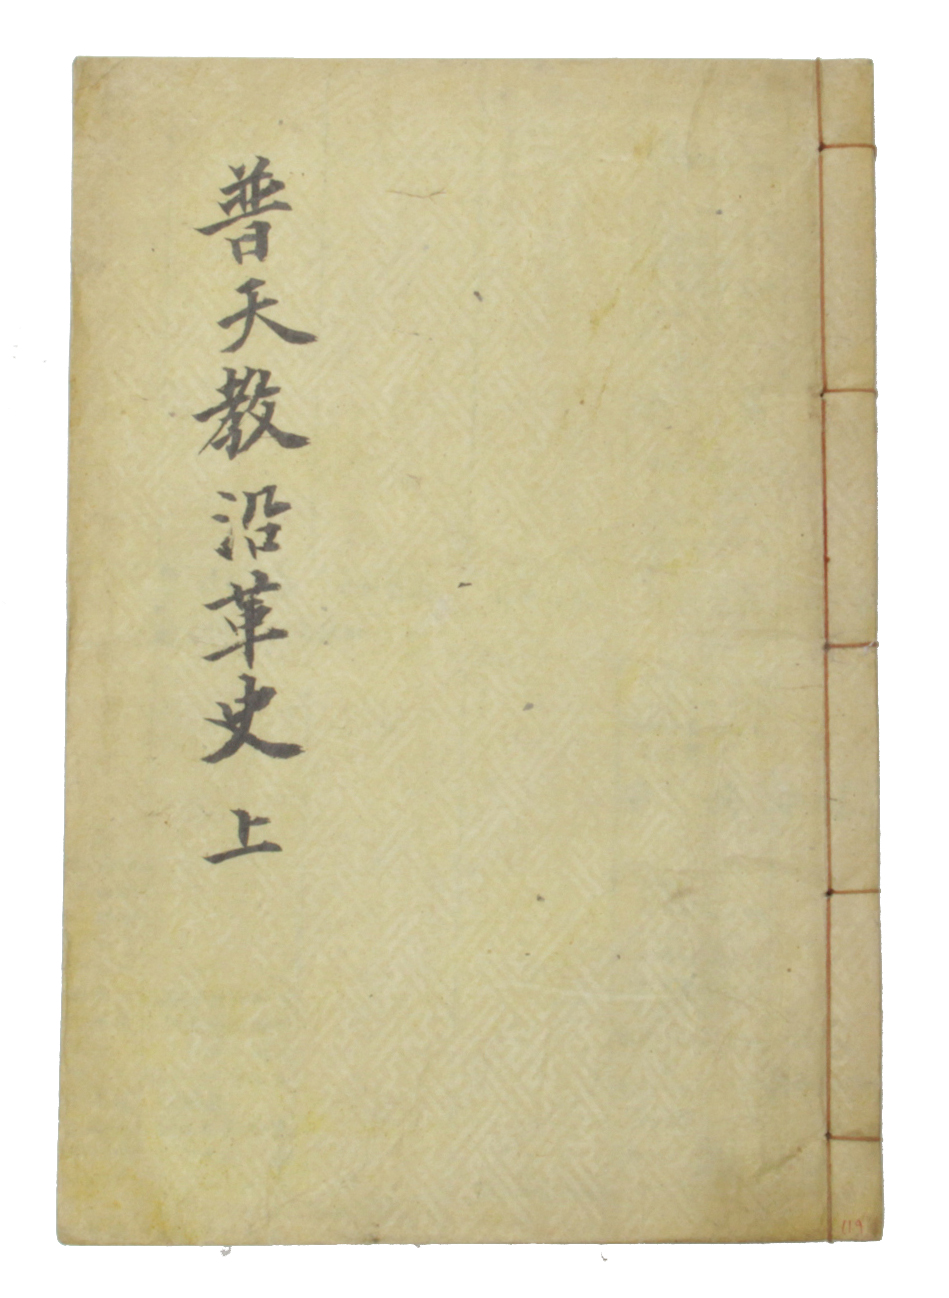 普天教沿革史 上
119